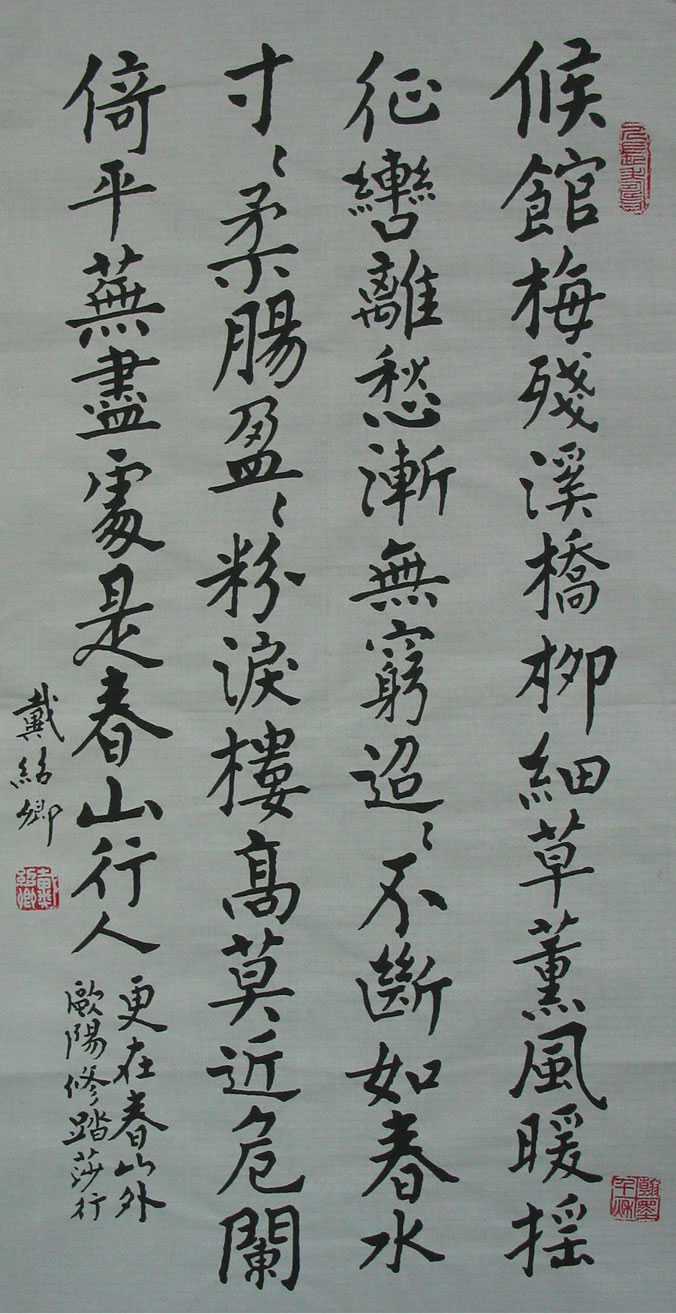 候館梅殘溪橋柳細草薰風暖揺
征轡離愁漸無窮迢〻不斷如春水
寸〻柔腸盈〻粉淚樓髙莫近危闌
倚平蕪盡處是春山行人
更在春山外
歐陽修踏莎行
戴紹卿